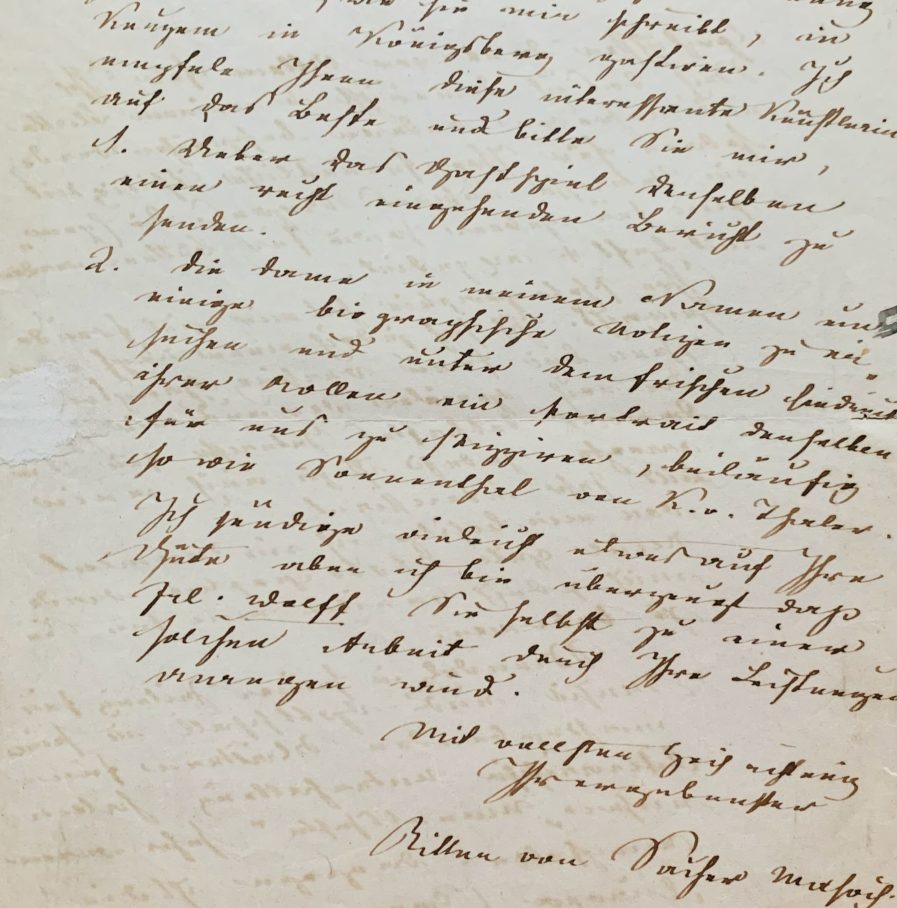 wie sie mir schreibt, in
Kurzem in Königsberg gastiren. Ich
empfele Ihnen diese interessante Künstlerin
auf das Beste und bitte Sie mir,
1. Ueber das Gastspiel derselben
einen recht eingehenden Bericht zu
senden.
2. die Dame in meinem Namen um
einige biographische Notizen zu er-
suchen und unter dem frischen Eindruck
ihrer Rollen ein Portrait derselben
für uns zu skizziren, beiläufig
so wie Sonnenthal von K. v. Thaler.
Ich sündige vielleicht etwas auf Ihre
Güte aber ich bin überzeugt daß
Frl. Wolff Sie selbst zu einer
solchen Arbeit durch Ihre Leistungen
anregen wird.
Mit vollster Hochachtung
Ihr ergebenster
Ritter von Sacher Masoch.